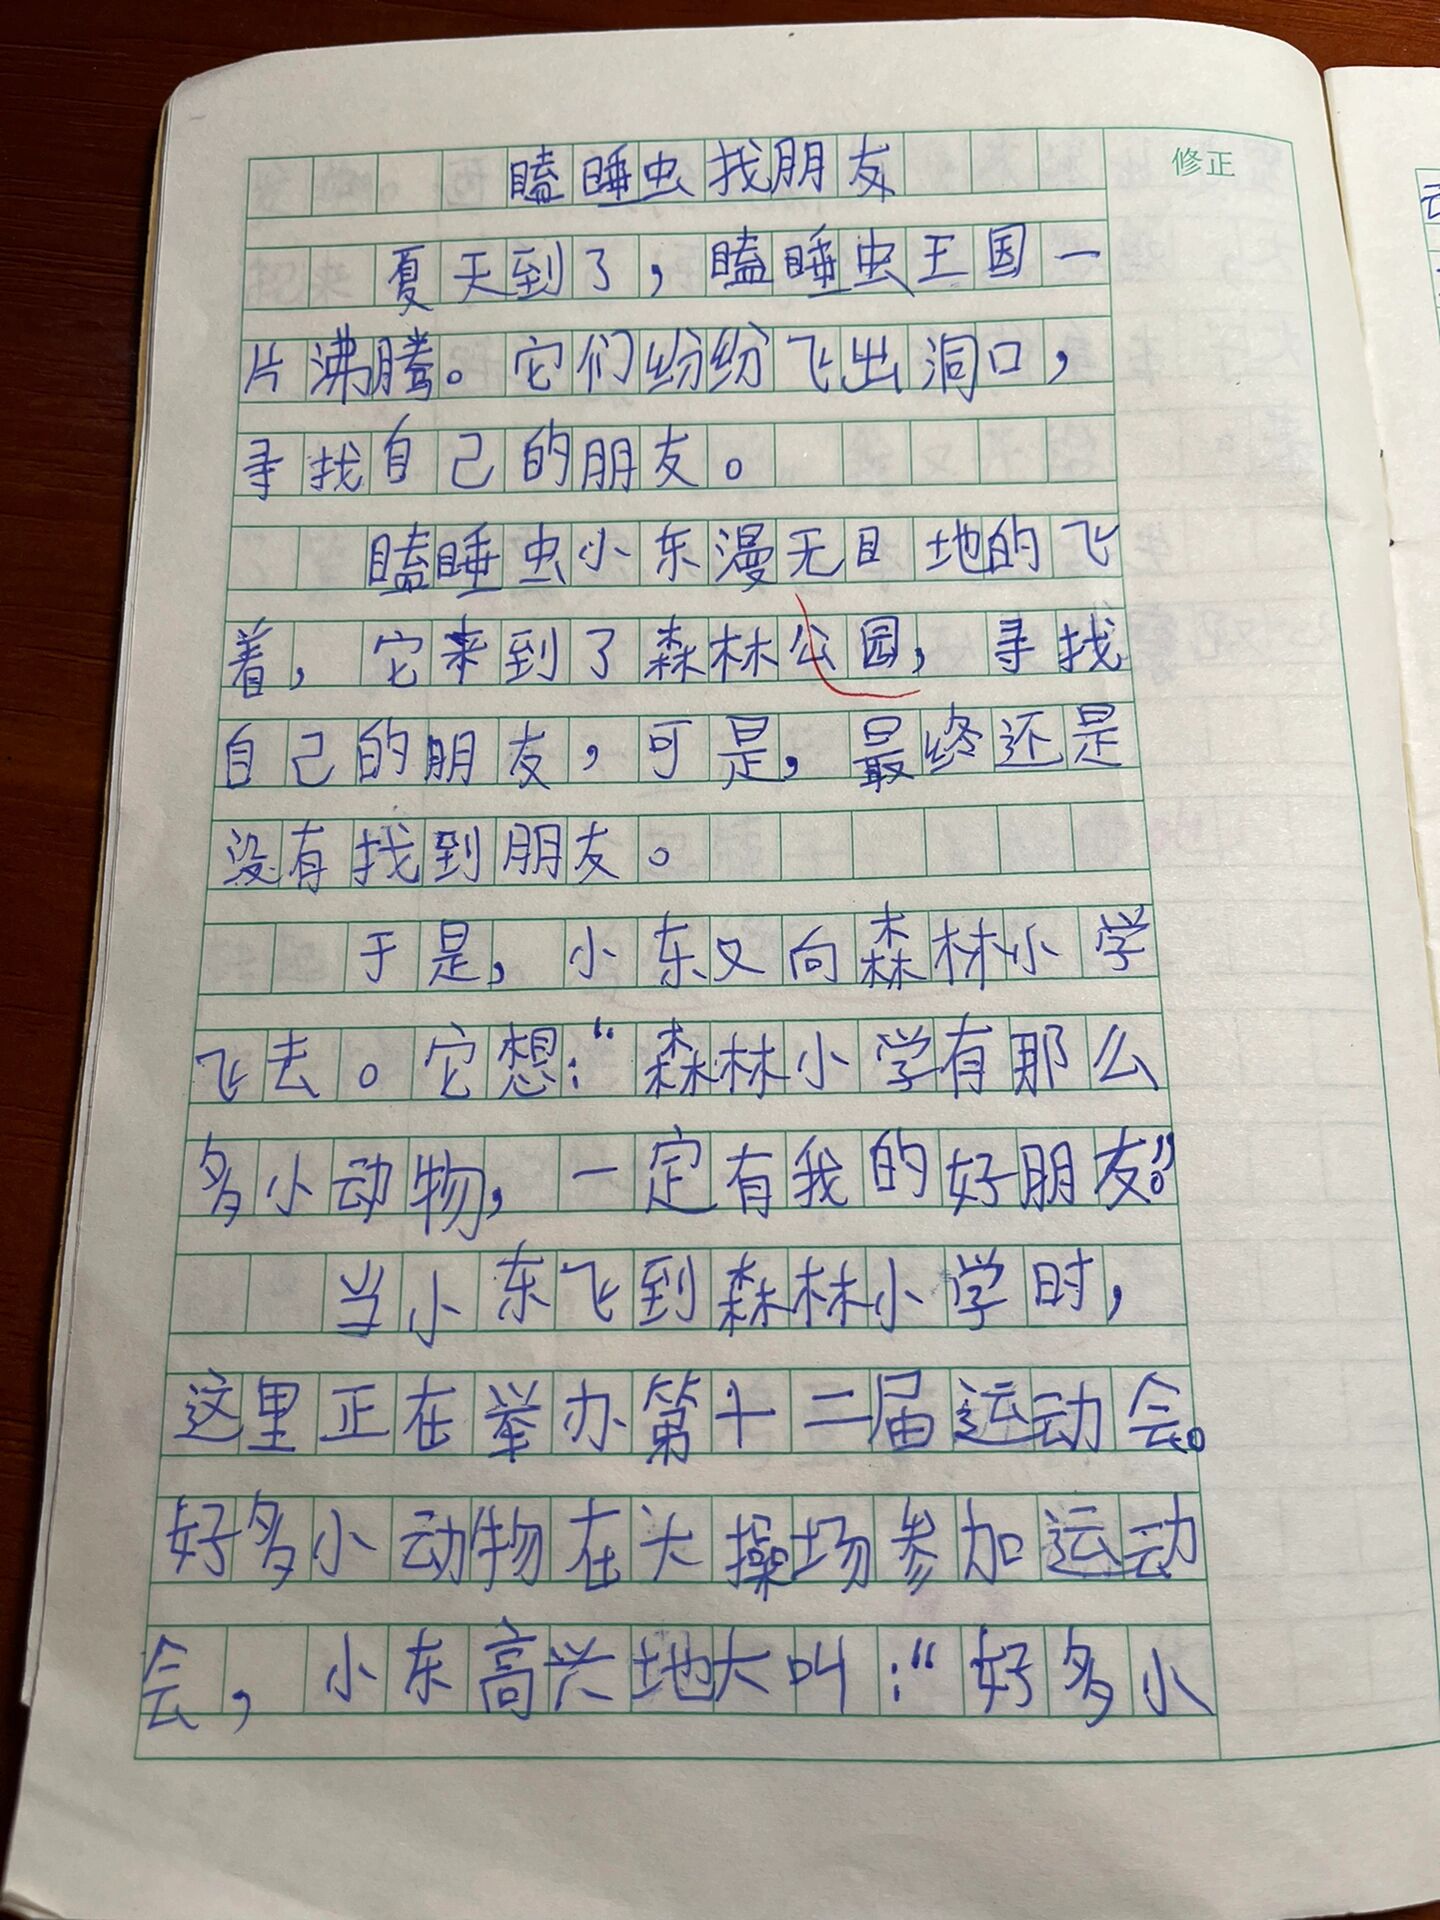 瞌睡虫找朋友
修正
夏天到了，瞌睡虫王国一
片沸腾。它们纷纷飞出洞口，
寻找自己的朋友。
瞌睡虫小东漫无目地的飞
着，它来到了森林公园，寻找
自己的朋友，可是，最终还是
没有找到朋友。
于是，小东又向森林小学
飞去。它想：“森林小学有那么
多小动物，一定有我的好朋友”。
当小东飞到森林小学时，
这里正在举办第十二届运动会。
好多小动物在大操场参加运动
会，小东高兴地大叫：“好多小